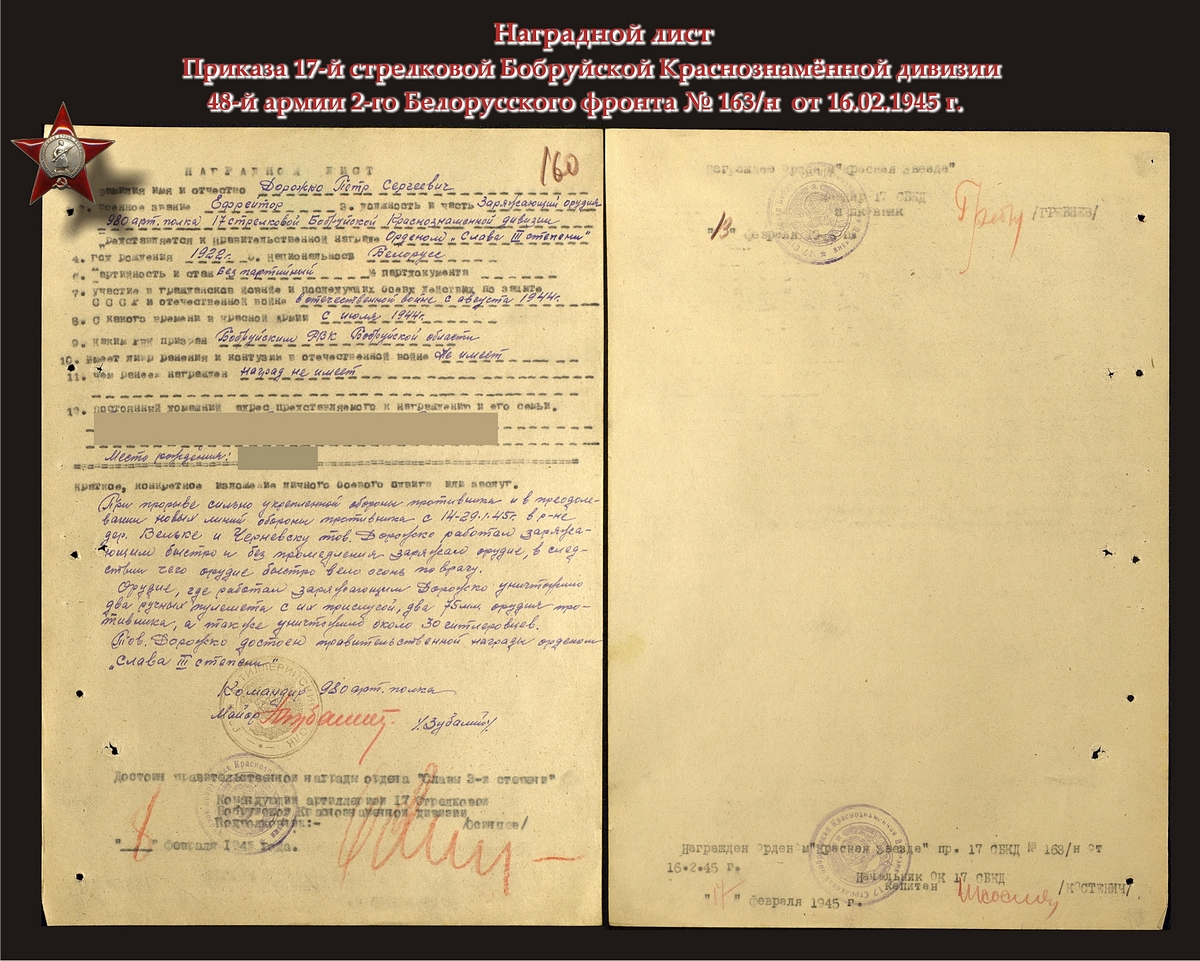 Наградной лист
Приказа 17-й стрелковой Бобруйской Краснознамённой дивизии
48-й армии 2-го Белорусского фронта № 163/н от 16.02.1945 г.
160
НАГРАДНОЙ ЛИСТ
фамилия имя и отчество Дорожко Петр Сергеевич
2. военное звание Ефрейтор 3. должность и часть Заряжающий орудия
980 арт. полка 17 стрелковой Бобруйской Краснознаменной дивизии
представляется к правительственной награде Орденом „Слава III степени"
4. год рождения 1922г. 5. национальность Белорусс
6. партийность и стаж без партийный № партдокумента
7. участие в гражданской войне и последующих боевх действях по защите
СССР и отечественной войне в отечественной войне с августа 1944г.
8. С какого времени в красной армии с июля 1944г.
9. каким рвк призван Бобруйским РВК Бобруйской области
10. имеет ли ранения и контузии в отечественной войне Не имеет
11. чем ранее награжден наград не имеет
12. постоянный домашний адрес представляемого к награждению и его семьи.
Место рождения:
Краткое, конкретное изложение личного боевого подвига или заслуг.
При прорыве сильно укрепленной обороны противника и в преодоле-
вании новых линий обороны противника с 14-29.1.45г. в р-не
дер. Вельке и Черневску тов. Дорожко работал заряжа-
ющим быстро и без промедления заряжал орудие, в след-
ствии чего орудие быстро вело огонь по врагу.
Орудие, где работал заряжающим Дорожко уничтожило
два ручных пулемета с их прислугой, два 75мм орудия про-
тивника, а также уничтожило около 30 гитлеровцев.
Тов. Дорожко достоен правительственной награды орденом
„Слава III степени"
Командир 980 арт. полка
Майор /Зубалий/
Достоин правительственной награды ордена "Славы 3-й степени"
Командующий артиллерией 17 Стрелковой
Бобруйской Краснознаменной дивизии
Подполковник:-
" " февраля 1945 года.
Награжден Орденом "Красная Звезда"
17 СБКД
полковник
/ГРЕБНЕВ/
"13" февраля
Награжден орденом "Красная Звезда" пр. 17 СБКД № 163/н от
16.2.45 г.
Начальник ОК 17 СБКД
капитан /КОСТЕНИЧ/
"17" февраля 1945 г.